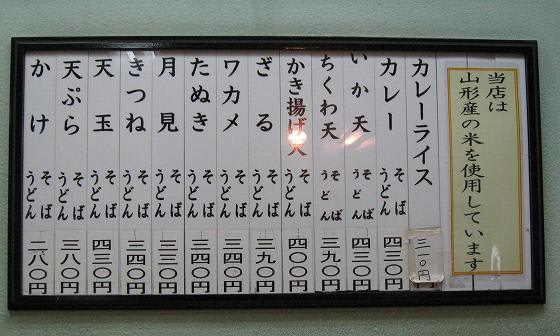 当店は
山形産の米を使用しています
カレーライス 三一〇円
カレー そば うどん 四三〇円
いか天 そば うどん 四三〇円
ちくわ天 そば うどん 三九〇円
かき揚げ天 そば うどん 四〇〇円
ざる そば うどん 三九〇円
ワカメ そば うどん 三四〇円
たぬき そば うどん 三四〇円
月見 そば うどん 三三〇円
きつね そば うどん 三四〇円
天玉 そば うどん 四三〇円
天ぷら そば うどん 三八〇円
かけ そば うどん 二八〇円